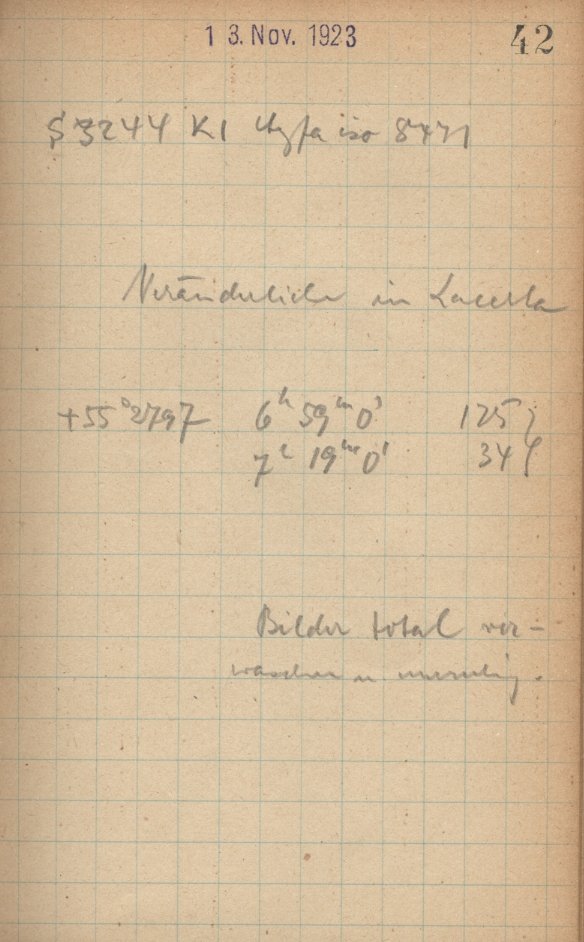 13. Nov. 1923
42
S 3244 K1 Agfa iso 8471
Veränderliche in Lacerta
+55°2797 6ʰ 59ᵐ 0ˢ 125
7ʰ 19ᵐ 0ˢ 34
Bilder total ver-
waschen u. unruhig.